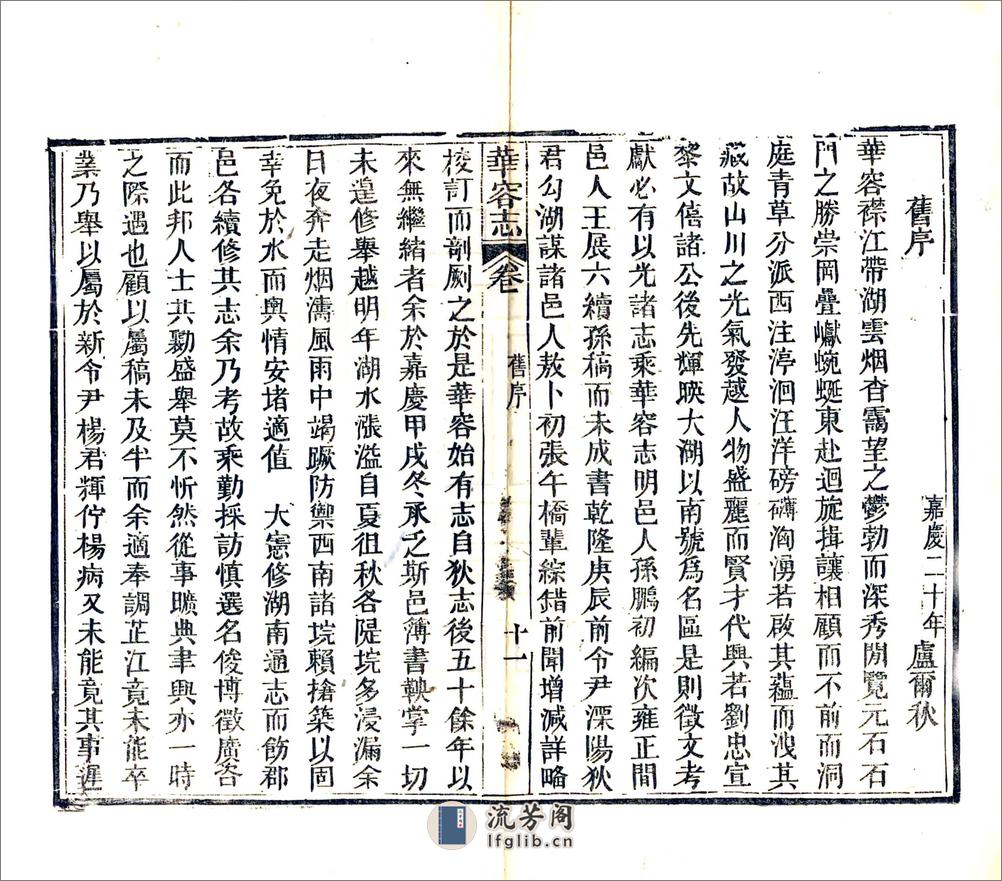 舊序
嘉慶二十年 盧爾秋
華容襟江帶湖雲烟杳靄望之鬱勃而深秀閒覽元石石
門之勝崇岡疊巘蜿蜒東赴迴旋揖讓相顧而不前而洞
庭青草分派西注渟洄汪洋磅礴洶湧若啟其蘊而洩其
藏故山川之光氣發越人物盛麗而賢才代興若劉忠宣
黎文僖諸公後先輝映大湖以南號爲名區是則徵文考
獻必有以光諸志乘華容志明邑人孫鵬初編次雍正間
邑人王展六續孫稿而未成書乾隆庚辰前令尹溧陽狄
君勾湖謀諸邑人敖卜初張午橋輩綜錯前聞增減詳略
華容志 卷 舊序 十一
挍訂而剞劂之於是華容始有志自狄志後五十餘年以
來無繼緒者余於嘉慶甲戌冬承乏斯邑簿書鞅掌一切
未遑修舉越明年湖水漲溢自夏徂秋各隄垸多浸漏余
日夜奔走烟濤風雨中竭蹶防禦西南諸垸賴搶築以固
幸免於水而輿情安堵適值 大憲修湖南通志而飭郡
邑各續修其志余乃考故乘勤採訪慎選名俊博徵廣咨
而此邦人士共勷盛舉莫不忻然從事曠典聿興亦一時
之際遇也顧以屬稿未及半而余適奉調芷江竟未能卒
業乃舉以屬於新令尹楊君輝佇楊病又未能竟其事遲
流芳阁
lfglib.cn